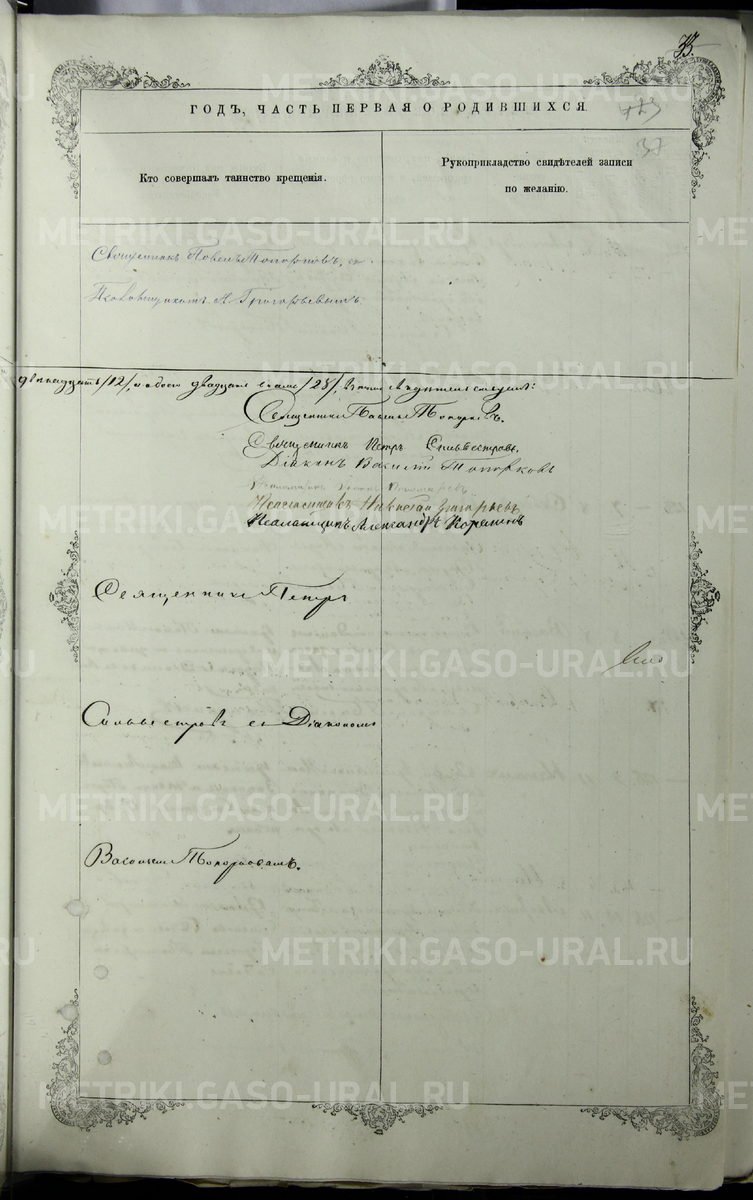 33.
ГОДЪ, ЧАСТЬ ПЕРВАЯ О РОДИВШИХСЯ
473
37
Кто совершалъ таинство крещенія.
Рукоприкладство свидѣтелей записи
по желанію.
Священникъ Павелъ Топорковъ, съ
Григорьевымъ.
двенадцать /12/, обоего двадцать /25/,
Священникъ Павелъ Топорковъ.
Священникъ Петръ Сильвестровъ,
Діаконъ Василій Топорковъ
Псаломщикъ Николай Григорьевъ
Псаломщикъ Александръ Коровинъ
Священникъ Петръ
Сильвестровъ съ Діакономъ
Василіемъ Топорковымъ.
METRIKI.GASO-URAL.RU